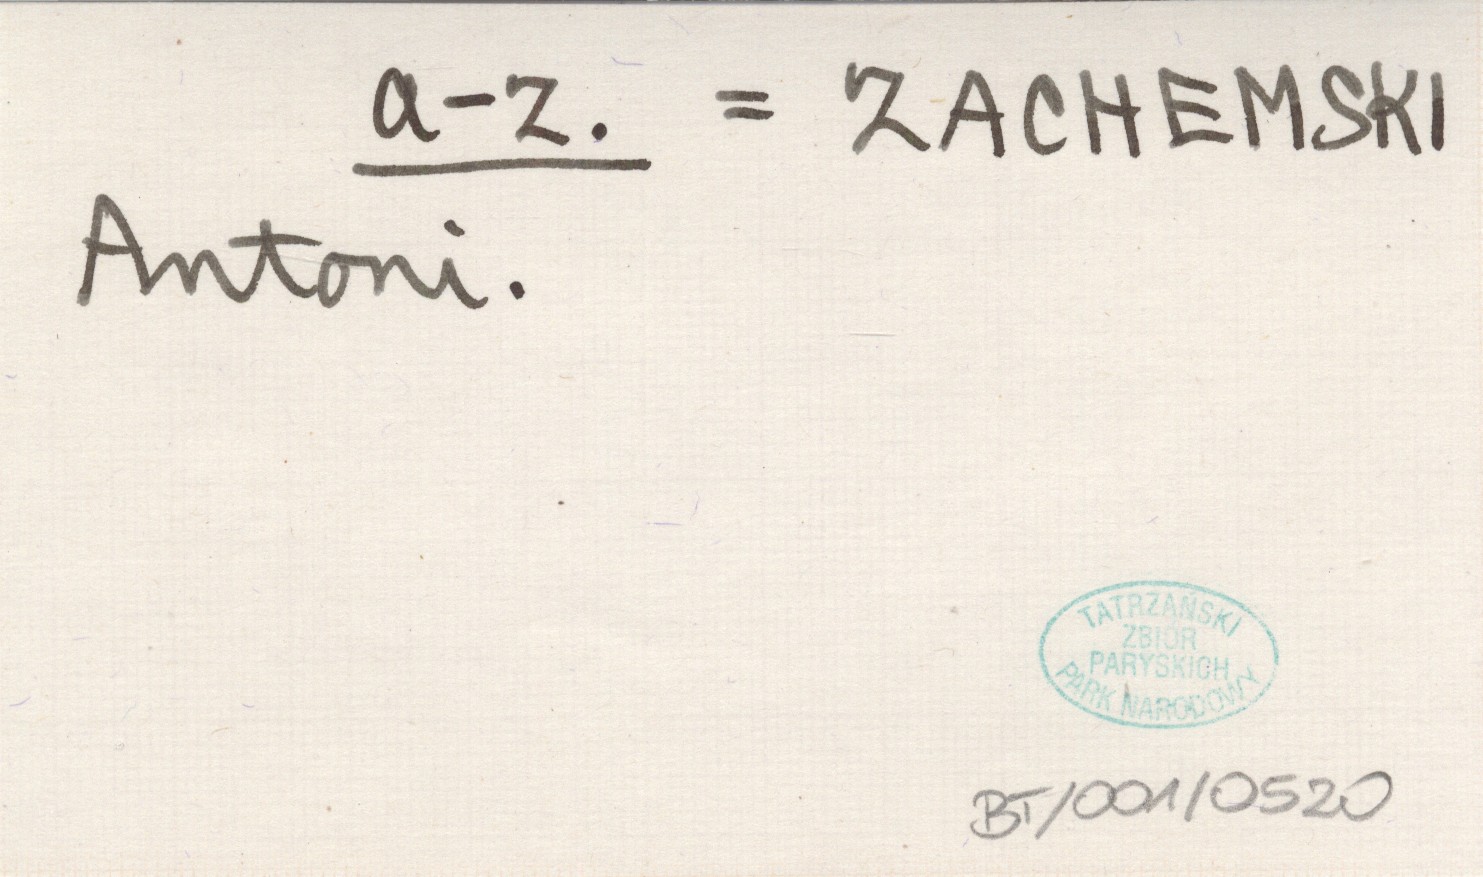 a-z. = ZACHEMSKI
Antoni.
TATRZAŃSKI
ZBIÓR
PARYSKICH
PARK NARODOWY
BT/001/0520